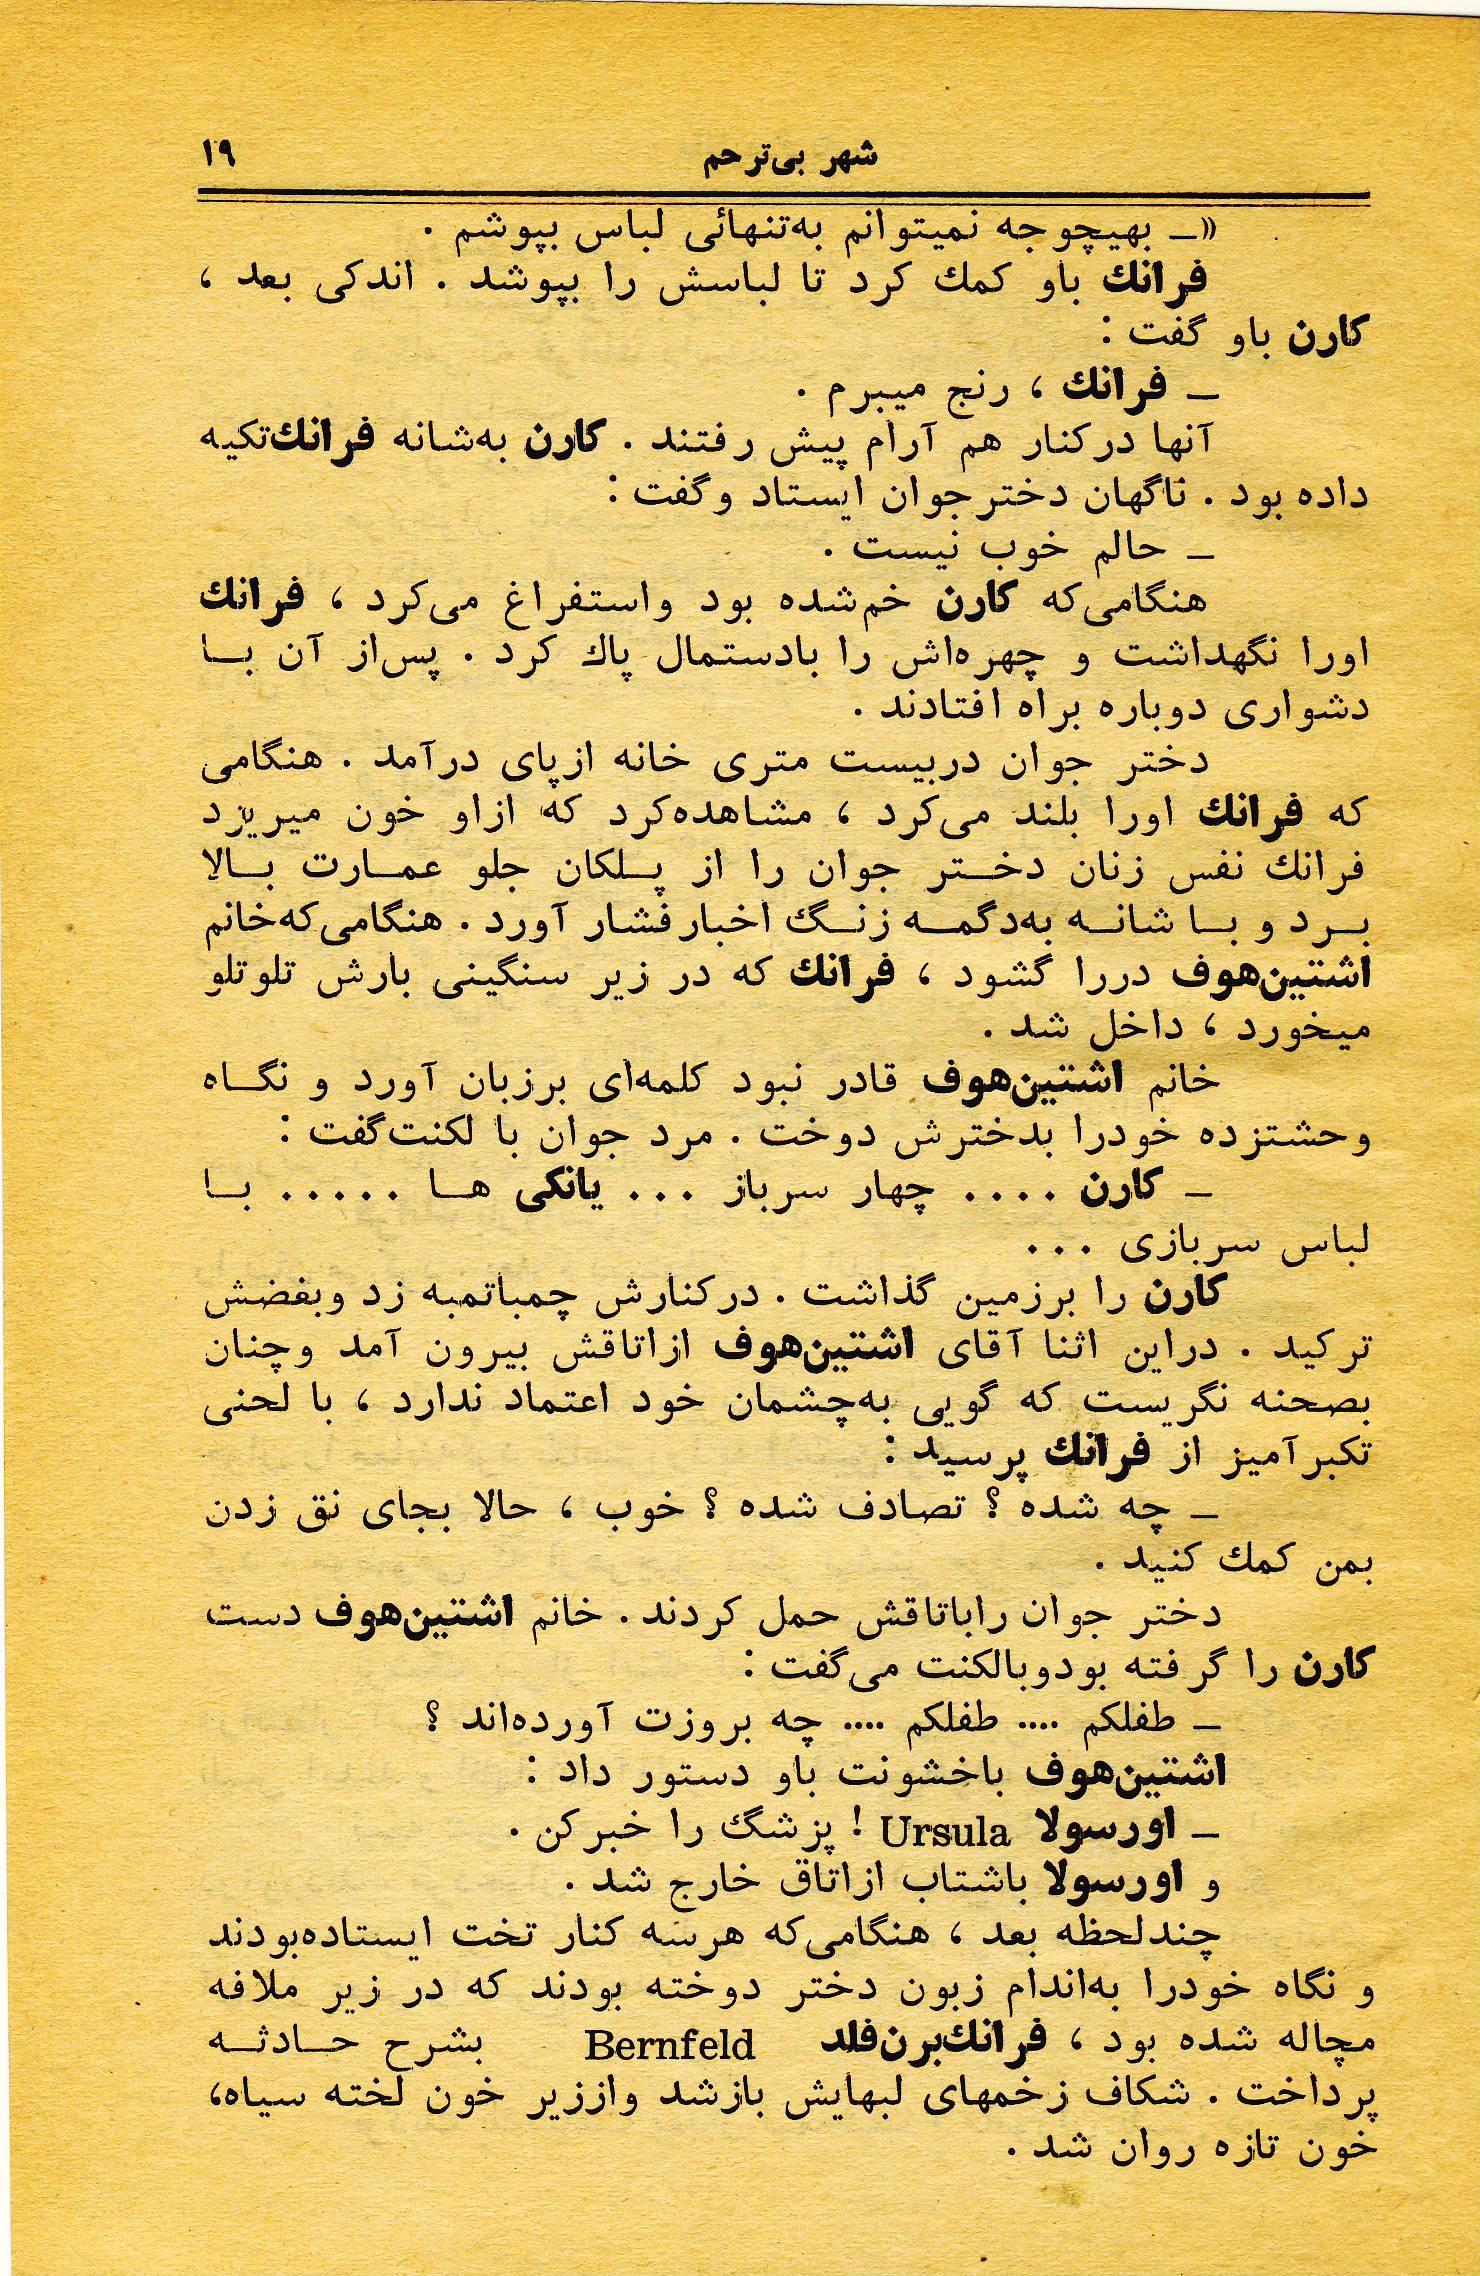 شهر بی‌ترحم
۱۹
«ـ بهیچوجه نمیتوانم به‌تنهائی لباس بپوشم .
فرانك باو كمك كرد تا لباسش را بپوشد . اندكی بعد ،
كارن باو گفت :
ـ فرانك ، رنج میبرم .
آنها دركنار هم آرام پیش رفتند . كارن به‌شانه فرانك تكیه
داده بود . ناگهان دخترجوان ایستاد وگفت :
ـ حالم خوب نیست .
هنگامی‌كه كارن خم‌شده بود واستفراغ می‌كرد ، فرانك
اورا نگهداشت و چهره‌اش را بادستمال پاك كرد . پس‌از آن بــا
دشواری دوباره براه افتادند .
دختر جوان دربیست متری خانه ازپای درآمد . هنگامی
كه فرانك اورا بلند می‌كرد ، مشاهده‌كرد كه ازاو خون میریزد
فرانك نفس زنان دخــتر جوان را از پــلكان جلو عمــارت بــالا
بــرد و بــا شانــه به‌دگمــه زنــگ اخبارفشار آورد . هنگامی‌كه‌خانم
اشتین‌هوف دررا گشود ، فرانك كه در زیر سنگینی بارش تلوتلو
میخورد ، داخل شد .
خانم اشتین‌هوف قادر نبود كلمه‌ای برزبان آورد و نگــاه
وحشتزده خودرا بدخترش دوخت . مرد جوان با لكنت‌گفت :
ـ كارن .... چهار سرباز ... یانكی هــا ..... بــا
لباس سربازی ...
كارن را برزمین گذاشت . دركنارش چمباتمبه زد وبغضش
تركید . دراین اثنا آقای اشتین‌هوف ازاتاقش بیرون آمد وچنان
بصحنه نگریست كه گویی به‌چشمان خود اعتماد ندارد ، با لحنی
تكبرآمیز از فرانك پرسید :
ـ چه شده ؟ تصادف شده ؟ خوب ، حالا بجای نق زدن
بمن كمك كنید .
دختر جوان راباتاقش حمل كردند . خانم اشتین‌هوف دست
كارن را گرفته بودوبالكنت می‌گفت :
ـ طفلكم .... طفلكم .... چه بروزت آورده‌اند ؟
اشتین‌هوف باخشونت باو دستور داد :
ـ اورسولا Ursula ! پزشگ را خبركن .
و اورسولا باشتاب ازاتاق خارج شد .
چندلحظه بعد ، هنگامی‌كه هرسه كنار تخت ایستاده‌بودند
و نگاه خودرا به‌اندام زبون دختر دوخته بودند كه در زیر ملافه
مچاله شده بود ، فرانك‌برن‌فلد Bernfeld بشرح حــادثــه
پرداخت . شكاف زخمهای لبهایش بازشد واززیر خون لخته سیاه،
خون تازه روان شد .